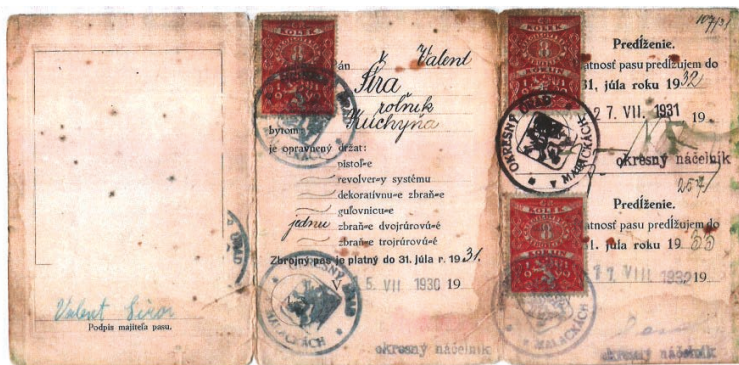 Valent Širor
Podpis majiteľa pasu.
án Valent
Šíra
roľník
bytom Kuchyňa
je oprávnený držať:
pistoľ-e
revolver-y systému
dekoratívnu-e zbraň-e
guľovnicu-e
jednu zbraň-e dvojrúrovú-é
zbraň-e trojrúrovú-é
Zbrojný pas je platný do 31. júla r. 1931.
V 5 VII 1930 19
OKRESNÝ ÚRAD
MALACKÁCH
okresný náčelník
107/31
KOLEK
8
KORUN
Predĺženie.
atnosť pasu predlžujem do
31. júla roku 1932
27. VII. 1931 19
OKRESNÝ ÚRAD
v MALACKÁCH
okresný náčelník
257
KOLEK
8
KORUN
Predĺženie.
atnosť pasu predlžujem do
1. júla roku 1933
VIII 1932 19
v MALACKÁCH
okresný náčelník